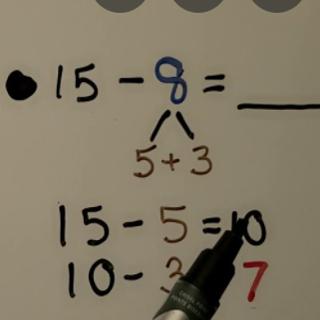 15 - 8 = ___
5 + 3
15 - 5 = 10
10 - 3 7